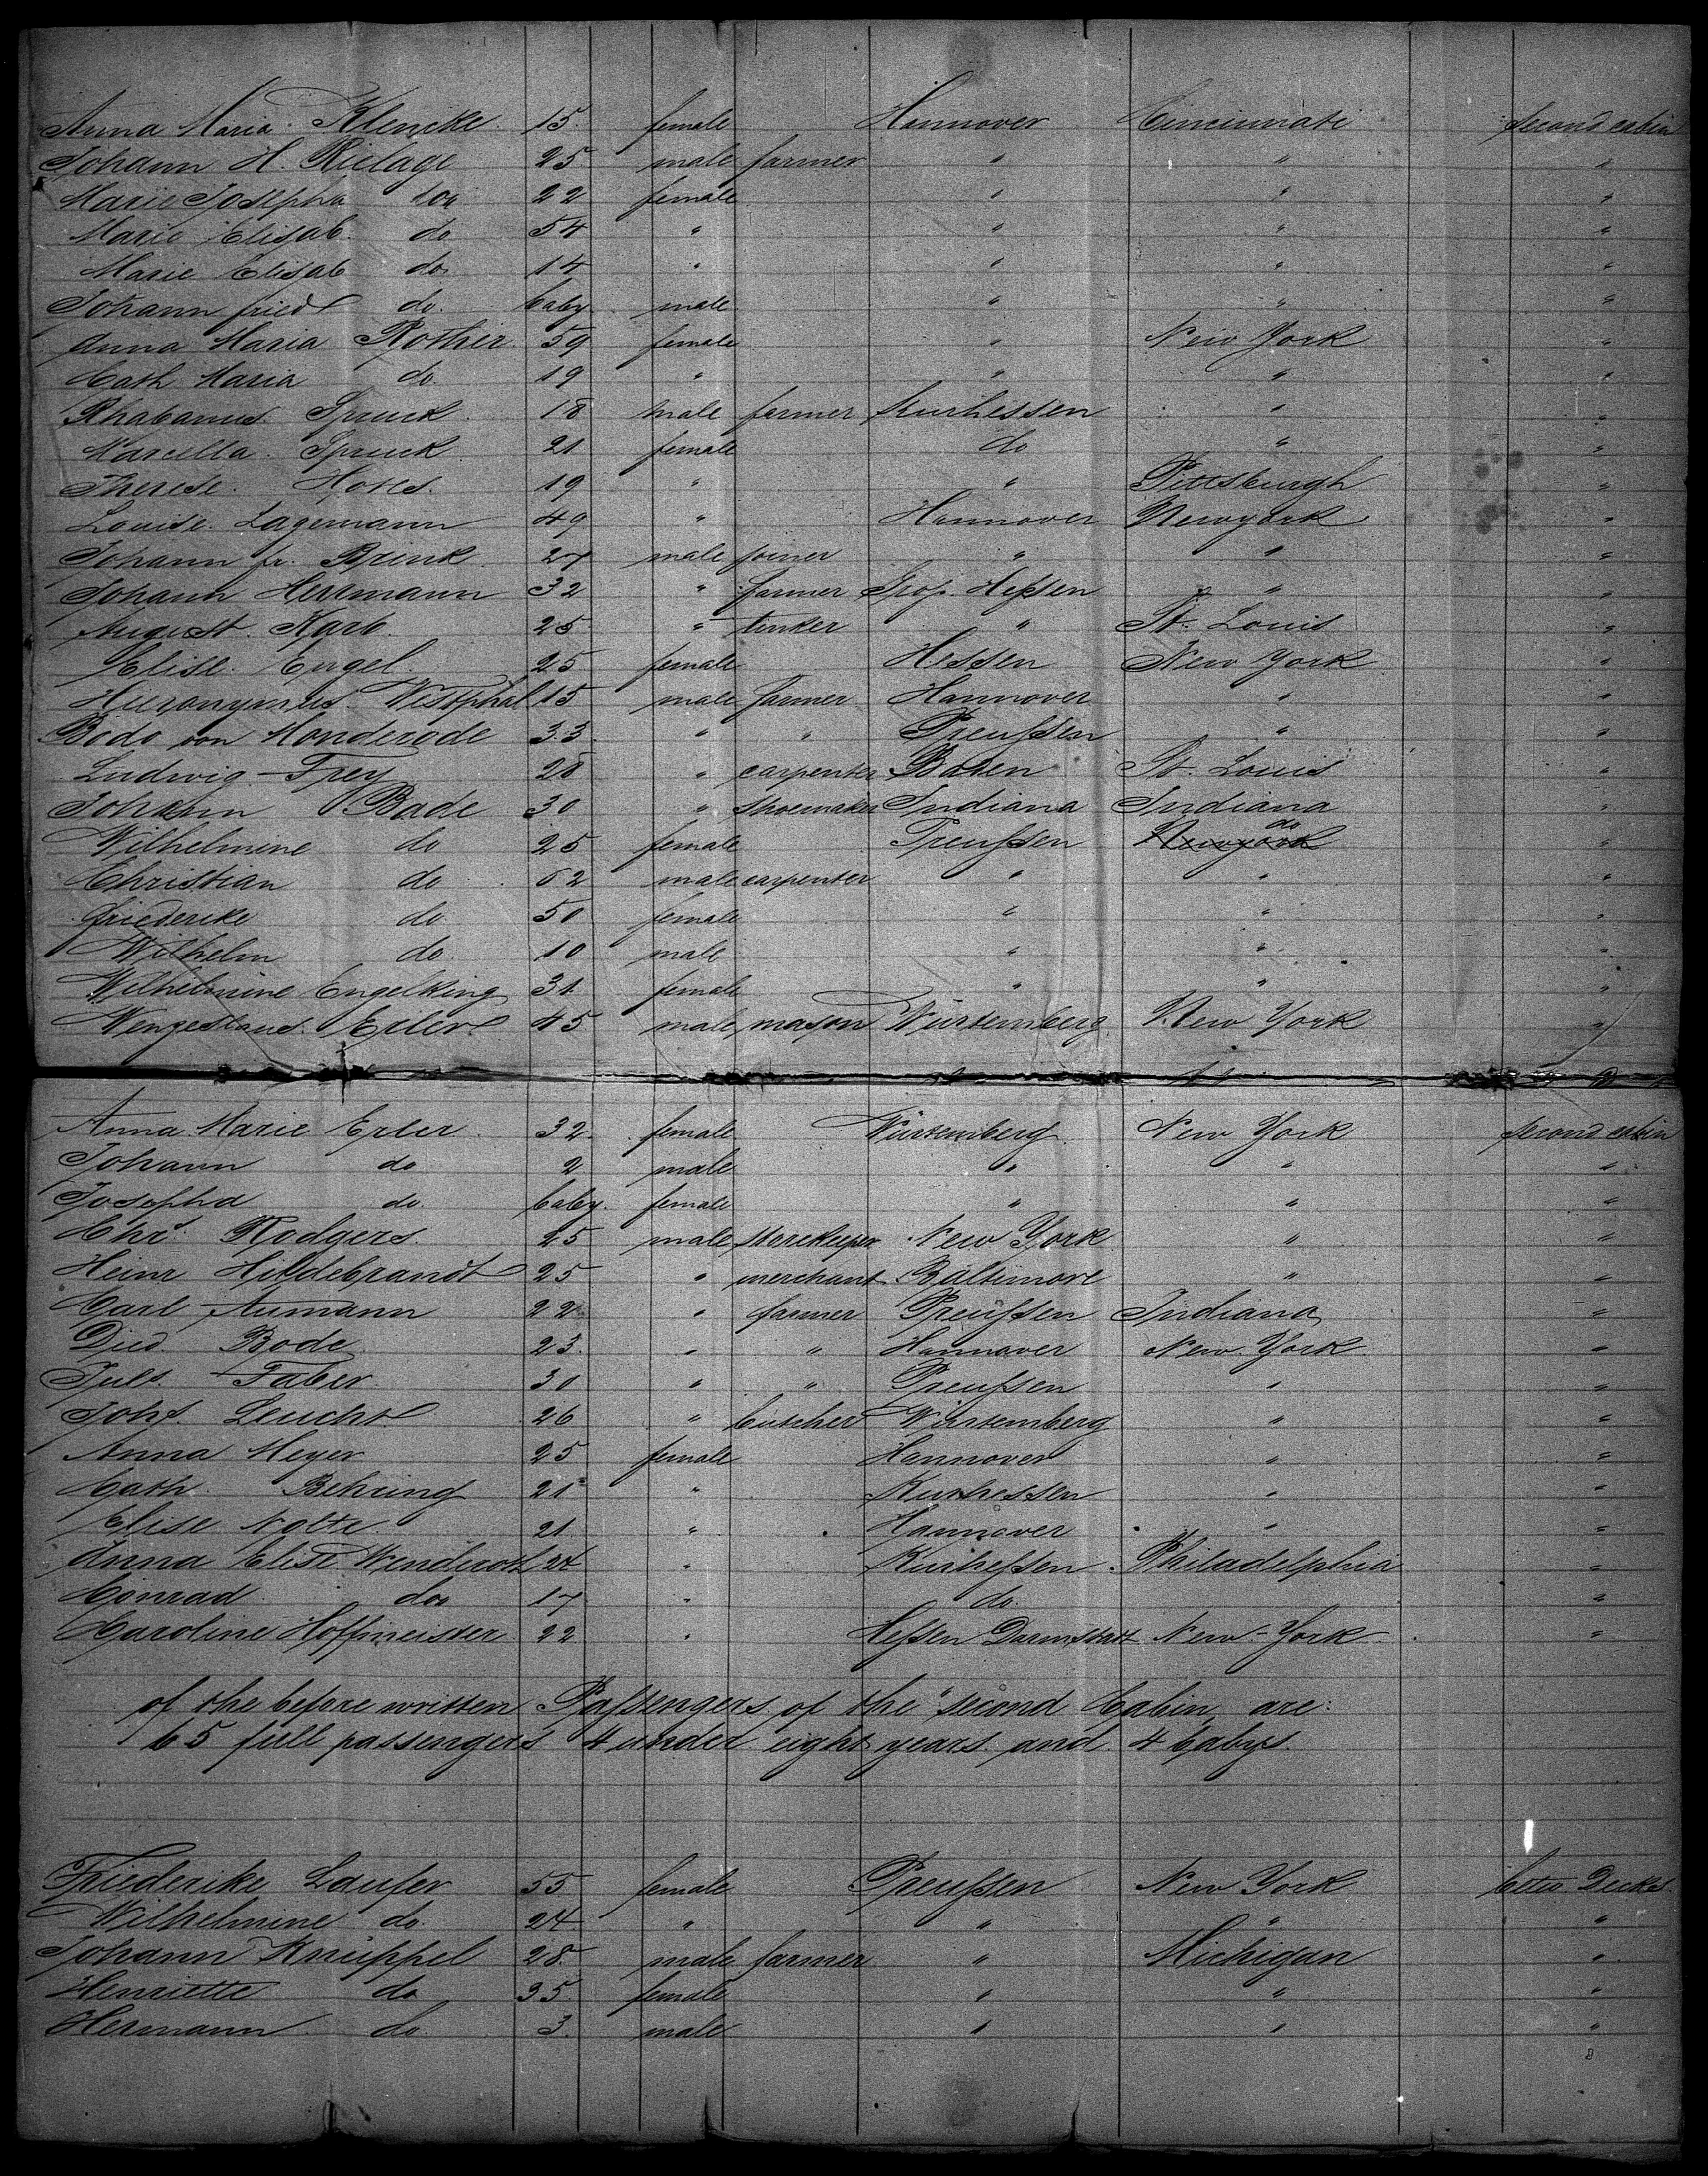 Anna Maria Klencke 15 female Hannover Cincinnati second cabin
Johann H. Rielage 25 male farmer " " "
Marie Josepha do 22 female " " "
Marie Elisab. do 54 " " " "
Marie Elisab do 14 " " " "
Johann fried do. baby male " " "
Anna Maria Rother 59 female " New York "
Cath Maria do. 19 " " " "
Rhabanus Spruck 18 male farmer Kurhessen " "
Marcella Spruck 21 female do " "
Therese 19 " " Pittsburgh "
Louise Lagemann 49 " Hannover Newyork "
Johann fr. Brink 27 male joiner " " "
Johann Herrmann 32 " farmer Hessen " "
August Karb 25 " tinker " St. Louis "
Elise Engel 25 female Hessen New York "
Hieronymus Westphal 15 male farmer Hannover " "
Bodo von 33 " " Preussen " "
Ludwig Frey 28 " carpenter Baden St. Louis "
Johann Bade 30 " shoemaker Indiana Indiana "
Wilhelmine do 25 female Preussen Newyork do "
Christian do 62 male carpenter " " "
friedericke do 50 female " " "
Wilhelm do. 10 male " " "
Wilhelmine Engelking 31 female " " "
Erler 45 male mason Würtemberg New York "
Anna Marie Erler 32 female Würtemberg New York second cabin
Johann do 2 male " " "
Josepha do. baby. female " " "
Chr. Rodgers 25 male storekeeper New York " "
Heinr Hildebrandt 25 " merchant Baltimore " "
Carl Aumann 22 " farmer Preussen Indiana "
Died. Bode 23 " " Hannover New York "
Juls. Faber 30 " " Preussen " "
Johs. Leucht 26 " butcher Würtemberg " "
Anna Meyer 25 female Hannover " "
Cath. Behring 21 " Kurhessen " "
Elise Nolte 21 " Hannover " "
Anna Elise Wenderoth 24 " Kurhessen Philadelphia "
Conrad do 17 " do. "
Caroline Hoffmeister 22 " Hessen Darmstatt New-York "
of the before written Passengers of the second Cabin are:
65 full passengers 4 under eight years and 4 babys.
Friederike Laufer 55 female Preussen New York Decks
Wilhelmine do. 24 " " " "
Johann Knüppel 28. male farmer " Michigan "
Henriette do 35 female " " "
Hermann do. 3. male " " "